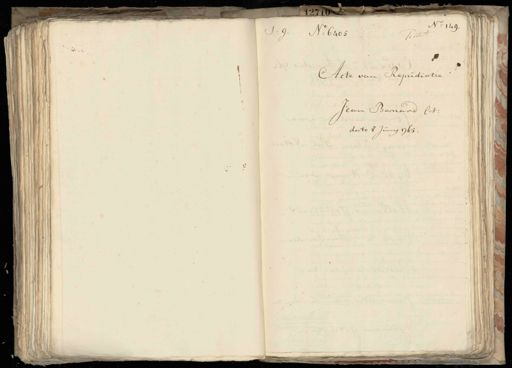 12710
S. 9. No 6405 No 149.
Acte van Repudiatie
Jean Barnard Cit:
dato 8 Juny 1763.